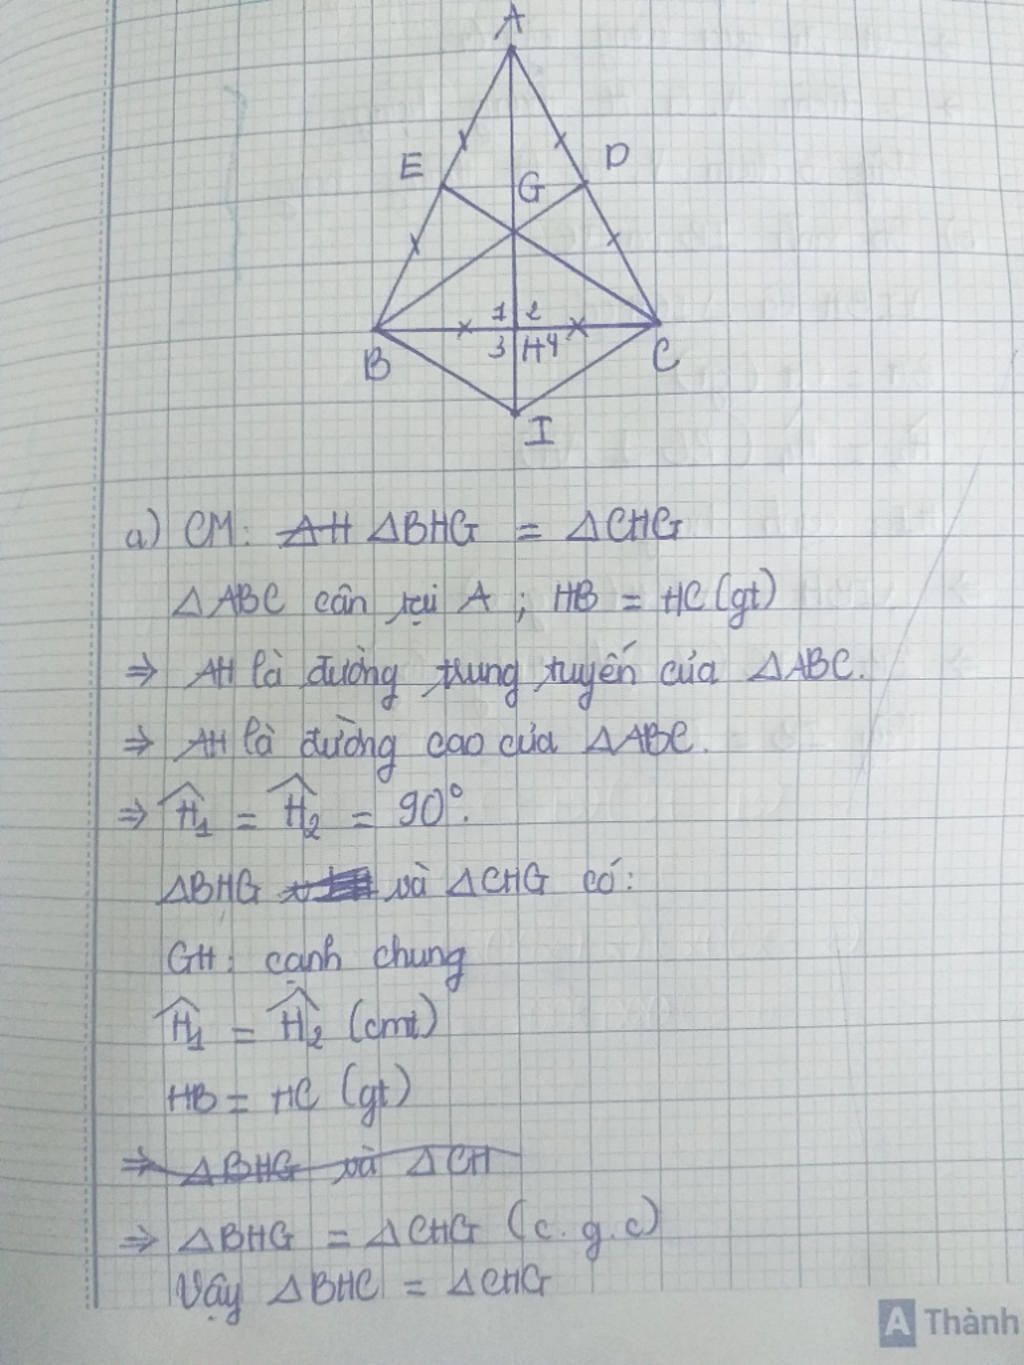 A
E
D
G
1 2
3 H 4
B
C
I
a) CM: AH ΔBHG = ΔCHG
ΔABC cân tại A ; HB = HC (gt)
⇒ AH là đường trung tuyến của ΔABC.
⇒ AH là đường cao của ΔABC.
⇒ Ĥ₁ = Ĥ₂ = 90°.
ΔBHG và ΔCHG có:
GH: cạnh chung
Ĥ₁ = Ĥ₂ (cmt)
HB = HC (gt)
⇒ ΔBHG và ΔCH
⇒ ΔBHG = ΔCHG (c.g.c)
Vậy ΔBHC = ΔCHG
A Thành